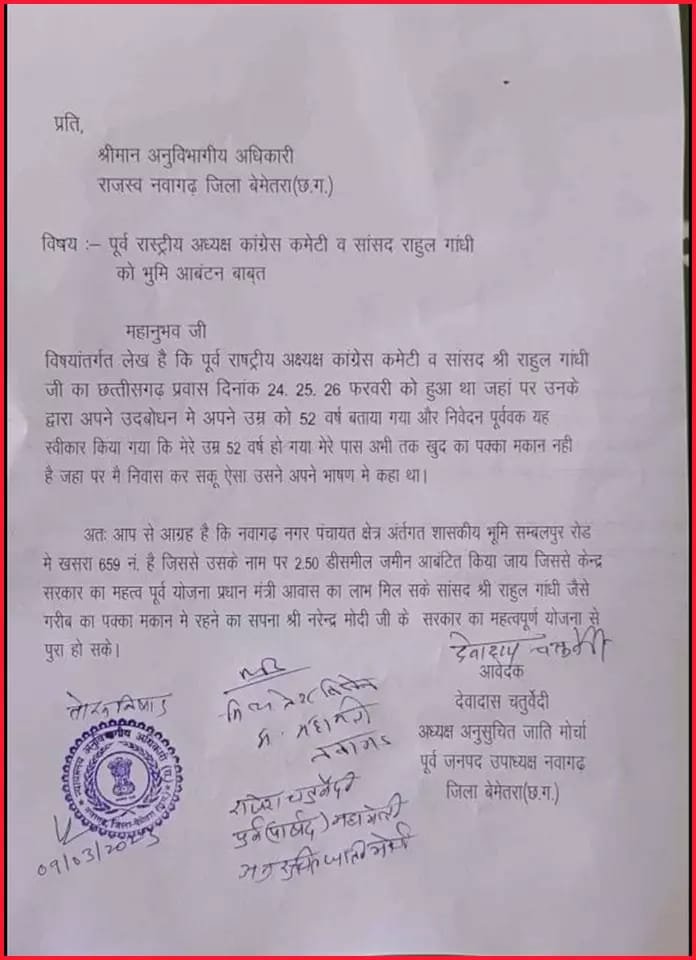 प्रति,
श्रीमान अनुविभागीय अधिकारी
राजस्व नवागढ़ जिला बेमेतरा(छ.ग.)
विषय :– पूर्व रास्ट्रीय अध्यक्ष कांग्रेस कमेटी व सांसद राहुल गांधी
को भुमि आबंटन बाबत
महानुभव जी
विषयांतर्गत लेख है कि पूर्व राषट्रीय अक्ष्यक्ष कांग्रेस कमेटी व सांसद श्री राहुल गांधी
जी का छत्तीसगढ़ प्रवास दिनांक 24. 25. 26 फरवरी को हुआ था जहां पर उनके
द्वारा अपने उदबोधन मे अपने उम्र को 52 वर्ष बताया गया और निवेदन पूर्ववक यह
स्वीकार किया गया कि मेरे उम्र 52 वर्ष हो गया मेरे पास अभी तक खुद का पक्का मकान नही
है जहा पर मै निवास कर सकू ऐसा उसने अपने भाषण मे कहा था।
अतः आप से आग्रह है कि नवागढ़ नगर पंचायत क्षेत्र अंर्तगत शासकीय भूमि सम्बलपुर रोड
मे खसरा 659 नं. है जिससे उसके नाम पर 2.50 डीसमील जमीन आबंटित किया जाय जिससे केन्द्र
सरकार का महत्व पूर्ण योजना प्रधान मंत्री आवास का लाभ मिल सके सांसद श्री राहुल गांधी जैसे
गरीब का पक्का मकान मे रहने का सपना श्री नरेन्द्र मोदी जी के सरकार का महत्वपूर्ण योजना से
पुरा हो सके।
देवादास चतुर्वेदी
आवेदक
देवादास चतुर्वेदी
अध्यक्ष अनुसुचित जाति मोर्चा
पूर्व जनपद उपाध्यक्ष नवागढ़
जिला बेमेतरा(छ.ग.)
महामंत्री
नवागढ
राजेश चतुर्वेदी
पूर्व (पार्षद) महामंत्री
अनुसूचित जाति मोर्चा
09/03/2023